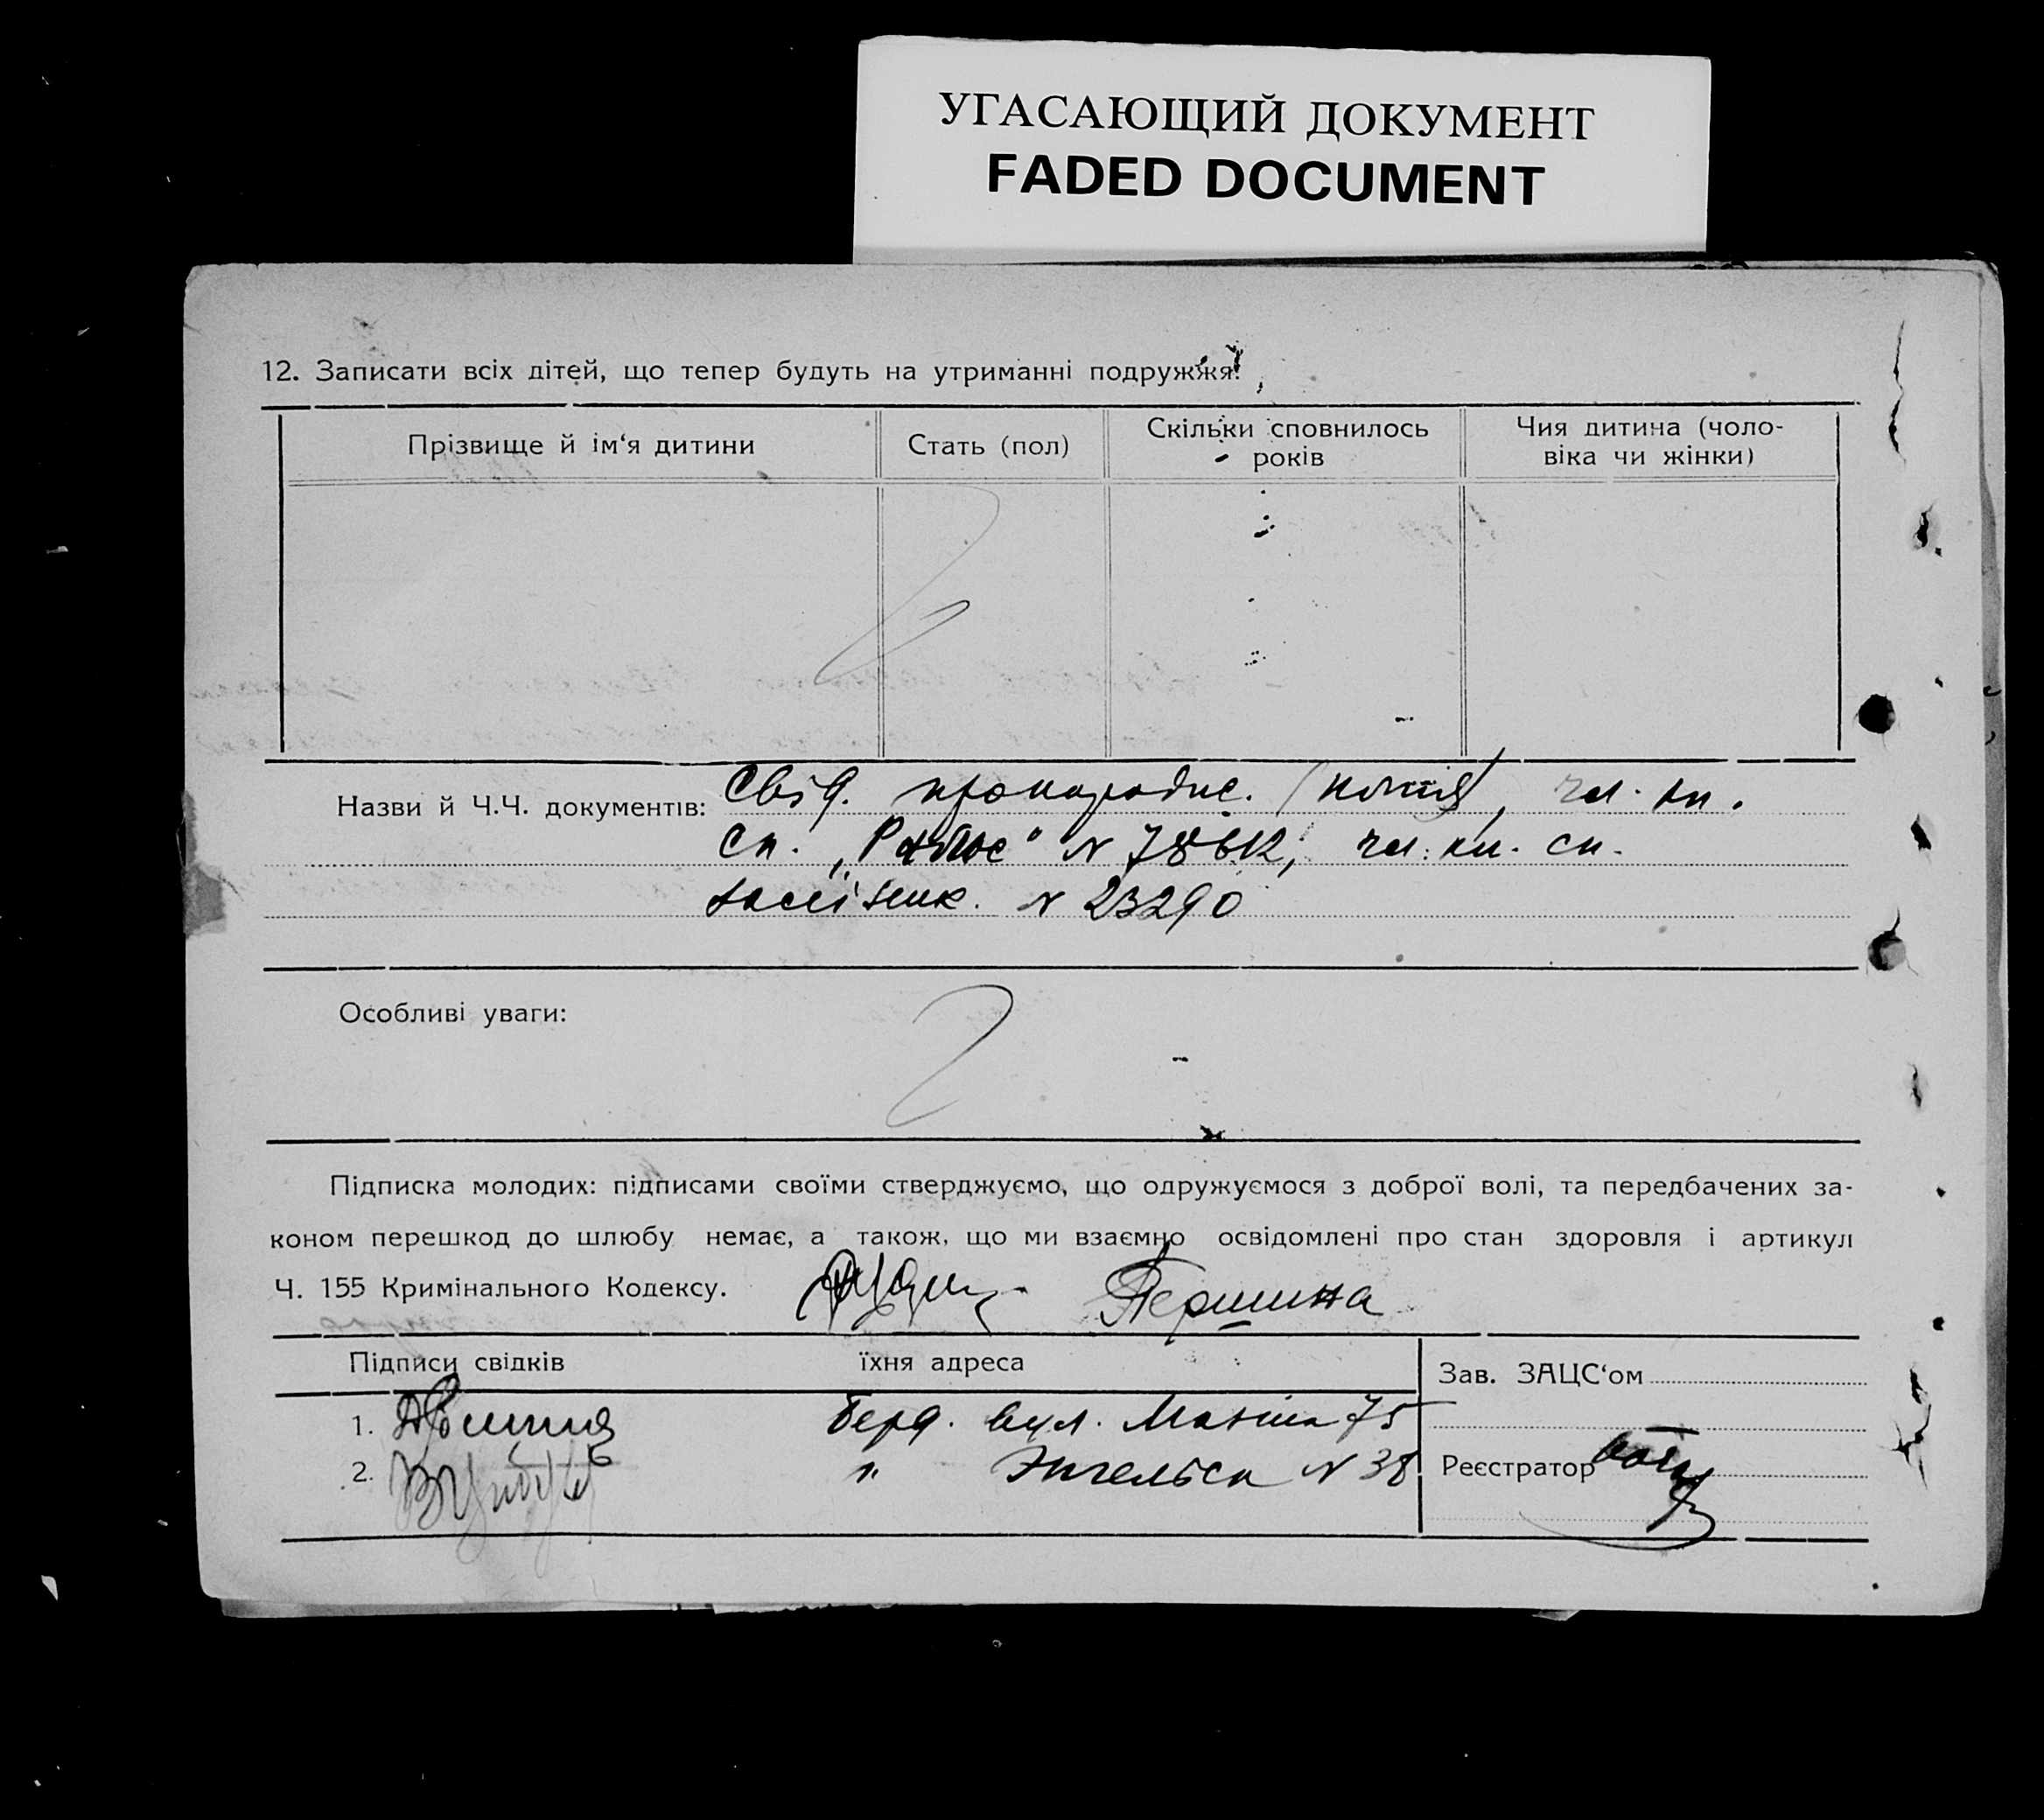 УГАСАЮЩИЙ ДОКУМЕНТ
FADED DOCUMENT
12. Записати всіх дітей, що тепер будуть на утриманні подружжя:
Прізвище й ім‘я дитини
Стать (пол)
Скільки сповнилось років
Чия дитина (чоло-
віка чи жінки)
Назви й Ч.Ч. документів: Свід. про народж. (копія), чл. кн.
сп. „ “ N чл. кн. сп.
N 23290
Особливі уваги:
Підписка молодих: підписами своїми стверджуємо, що одружуємося з доброї волі, та передбачених за-
коном перешкод до шлюбу немає, а також, що ми взаємно освідомлені про стан здоровля і артикул
Ч. 155 Кримінального Кодексу. Першина
Підписи свідків їхня адреса
Зав. ЗАЦС‘ом
1. Берд. вул. 75
2. " Энгельса N 38
Реєстратор